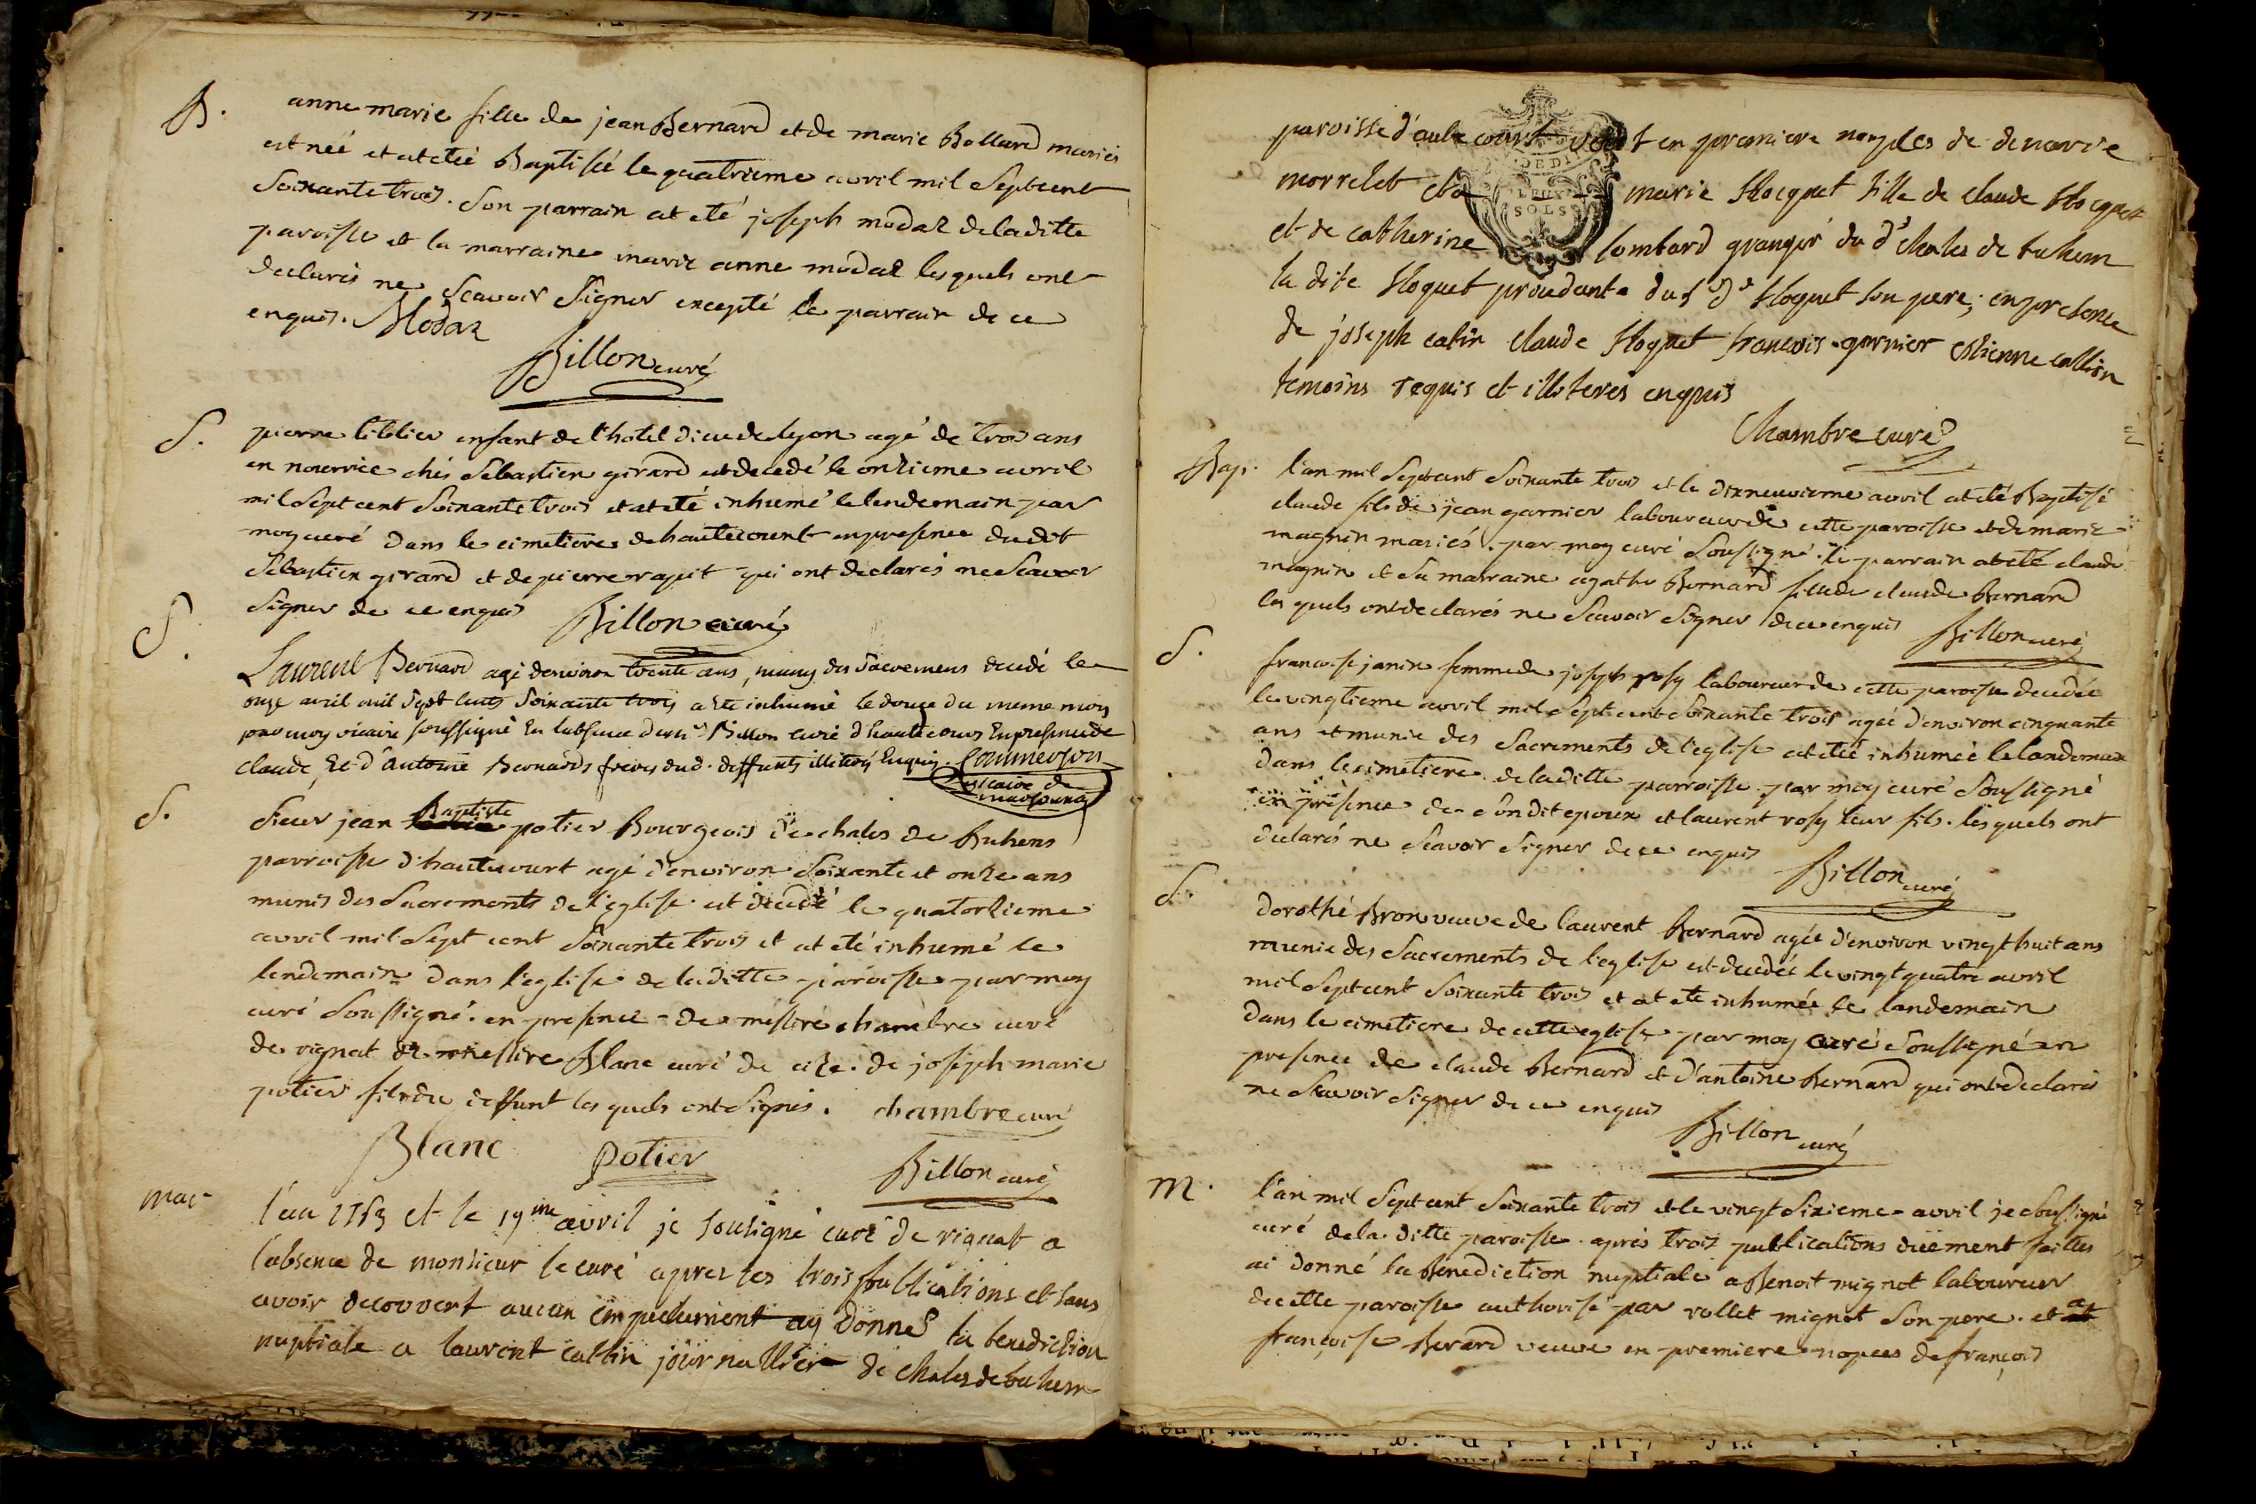 B.
anne marie fille de jean Bernard et de marie Bollard mariés
est néé et at eté Baptisée le quatrieme avril mil Septcent
Soixante trois. Son parrain at eté joseph modaz de la ditte
paroisse et la marraine marie anne modaz les quels ont
declarés ne Scavoir Signer excepté le parrain de ce
enquis. Modaz
Billon curé
S.
pierre enfant de l'hotel dieu de lyon agé de trois ans
en nourrice chés Sebastien girard est decedé le onzieme avril
mil Sept cent Soixante trois et at eté inhumé le lendemain par
moy curé dans le cimetiere de hautecourt en presence dudit
Sebastien girard et de pierre rapit qui ont declarés ne Scavoir
Signer de ce enquis Billon curé
S.
Laurent Bernard agé denviron trente ans, muny des Sacremens decedé le
onze avril mil Sept cents Soixante trois a ete inhumé le douze du meme mois
par moy vicaire soussigné En labsence de mr Billon curé dhautecour En presence de
Claude Et d'Antoine Bernards freres dud. deffunts illiterés Enquis.
vicaire de
S.
Sieur jean Baptiste potier Bourgeois de chales de Buhens
parroisse d'hautecourt agé d'environ Soixante et onze ans
munis des Sacrements de l'eglise est decedé le quatorzieme
avril mil Sept cent Soixante trois et at eté inhumé le
lendemain dans l'eglise de la ditte paroisse par moy
curé Soussigné. en presence de messire chambre curé
de rignat de messire Blanc curé de cize. de joseph marie
potier fils du deffunt les quels ont Signés. chambre curé
Blanc Potier Billon curé
mar
l'an 1763 et le 19me avril je sousigné curé de rignat a
l'absence de monsieur le curé apres les trois publications et sans
avoir decouvert aucun empechement ay donné la benediction
nuptiale a laurent cattin journallier de chales de buhem
paroisse d'aute court en premiere noples de
morrelet marie Hocquet fille de claude Hocquet
et de catherine lombard granger du dt chales de buhem
la dite Hoquet proudante du Sr dt Hoquet son pere; en presence
de joseph catin claude Hoquet francois garnier estienne callion
temoins requis et illiterés enquis
Chambre curé
Bap.
l'an mil Septcent Soixante trois et le dixneuvieme avril at eté Baptisé
claude fils de jean garnier laboureur de cette paroisse et de marie
magnin mariés. par moy curé Soussigné. le parrain at eté claude
magnin et Sa marraine agathe Bernard fille de claude Bernard
les quels ont declarés ne Scavoir Signer de ce enquis Billon curé
S.
francoise janin femme de joseph rosy laboureur de cette paroisse decedée
le vingtieme avril mil Sept cent Soixante trois agée d'environ cinquante
ans et munie des Sacrements de l'eglise at eté inhumée le landemain
dans le cimetiere de la ditte parroisse par moy curé Soussigné
en presence de Son dit epoux et laurent rosy leur fils. les quels ont
declarés ne Scavoir Signer de ce enquis
Billon curé
S.
dorothé Bron veuve de laurent Bernard agée d'environ vingt huit ans
munie des Sacrements de l'eglise est decedée le vingt quatre avril
mil Septcent Soixante trois et at ete inhumée le landemain
dans le cimetiere de cette eglise par moy curé Soussigné en
presence de claude Bernard et d'antoine Bernard qui ont declarés
ne Scavoir Signer de ce enquis
Billon curé
M.
l'an mil Septcent Soixante trois et le vingt Sixieme avril je Soussigné
curé de la ditte paroisse après trois publications duement faittes
ai donné la Benediction nuptiale a Benoit mignot laboureur
de cette paroisse authorisé par rollet mignot Son pere. et a
françoise Berard veuve en premiere nopces de françois